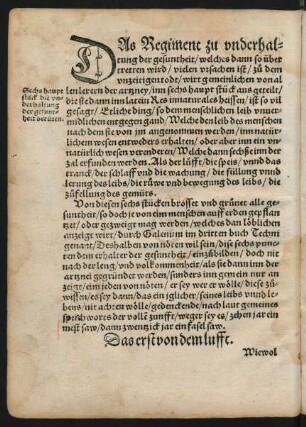 DAs Regiment zu vnderhal-
tung der gesuntheit/ welches dann so über
tretten wird/ vielen vrsachen ist/ zů dem
vnzeitigen todt/ wirt gemeinlichen von al
Sechs haupt
stück die vn-
derhaltung
der gesunt-
heit
len lerern der artzney/ inn sechs haupt stück aus geteilt/
die sie dann inn latein Res innaturales heissen/ ist so vil
gesagt/ Etliche ding/ so dem menschlichen leib vnuer
midlichen entgegen gan/ Welche den leib des menschen
nach dem sie von jm angenommen werden/ inn natür-
lichem wesen entweders erhalten/ oder aber inn ein vn-
natürlich wesen verwenden/ Welche dann sechße inn der
zal erfunden werden. Als der lufft/ die speis/ vnnd das
tranck/ der schlaff vnd die wachung/ die füllung vnnd
lerung des leibs/ die rüwe vnd bewegung des leibs/ die
zůfellung des gemüts.
Von disen sechs stücken brosset vnd grünet alle ge-
suntheit/ so doch je von eim menschen auff erden gepflan
tzet/ oder gezweigt mag werden/ welches dan löblichen
anzeigt wirt/ durch Galenum im dritten bůch Techni
genant/ Deshalben von nöten wil sein/ dise sechs punc-
ten dem erhalter der gesuntheit/ einzůbilden/ doch nit
nach der leng/ vnd volkommenheit/ als sie dann inn der
artznei gegründet werden/ sunders inn gemein nur an
zeigt/ eim jeden von nöten/ er sey wer er wölle/ diese zů-
wissen/ es sey dann/ das ein jglicher/ seines leibs vnnd lebens/
nit achten wölle/ gedenckende/ nach laut gemeines
sprichworts der vollē zunfft/ weger sey es/ zehen jar ein
mest saw/ dann zwentzick jar ein fasel saw.
Das erst von dem lufft.
Wiewol